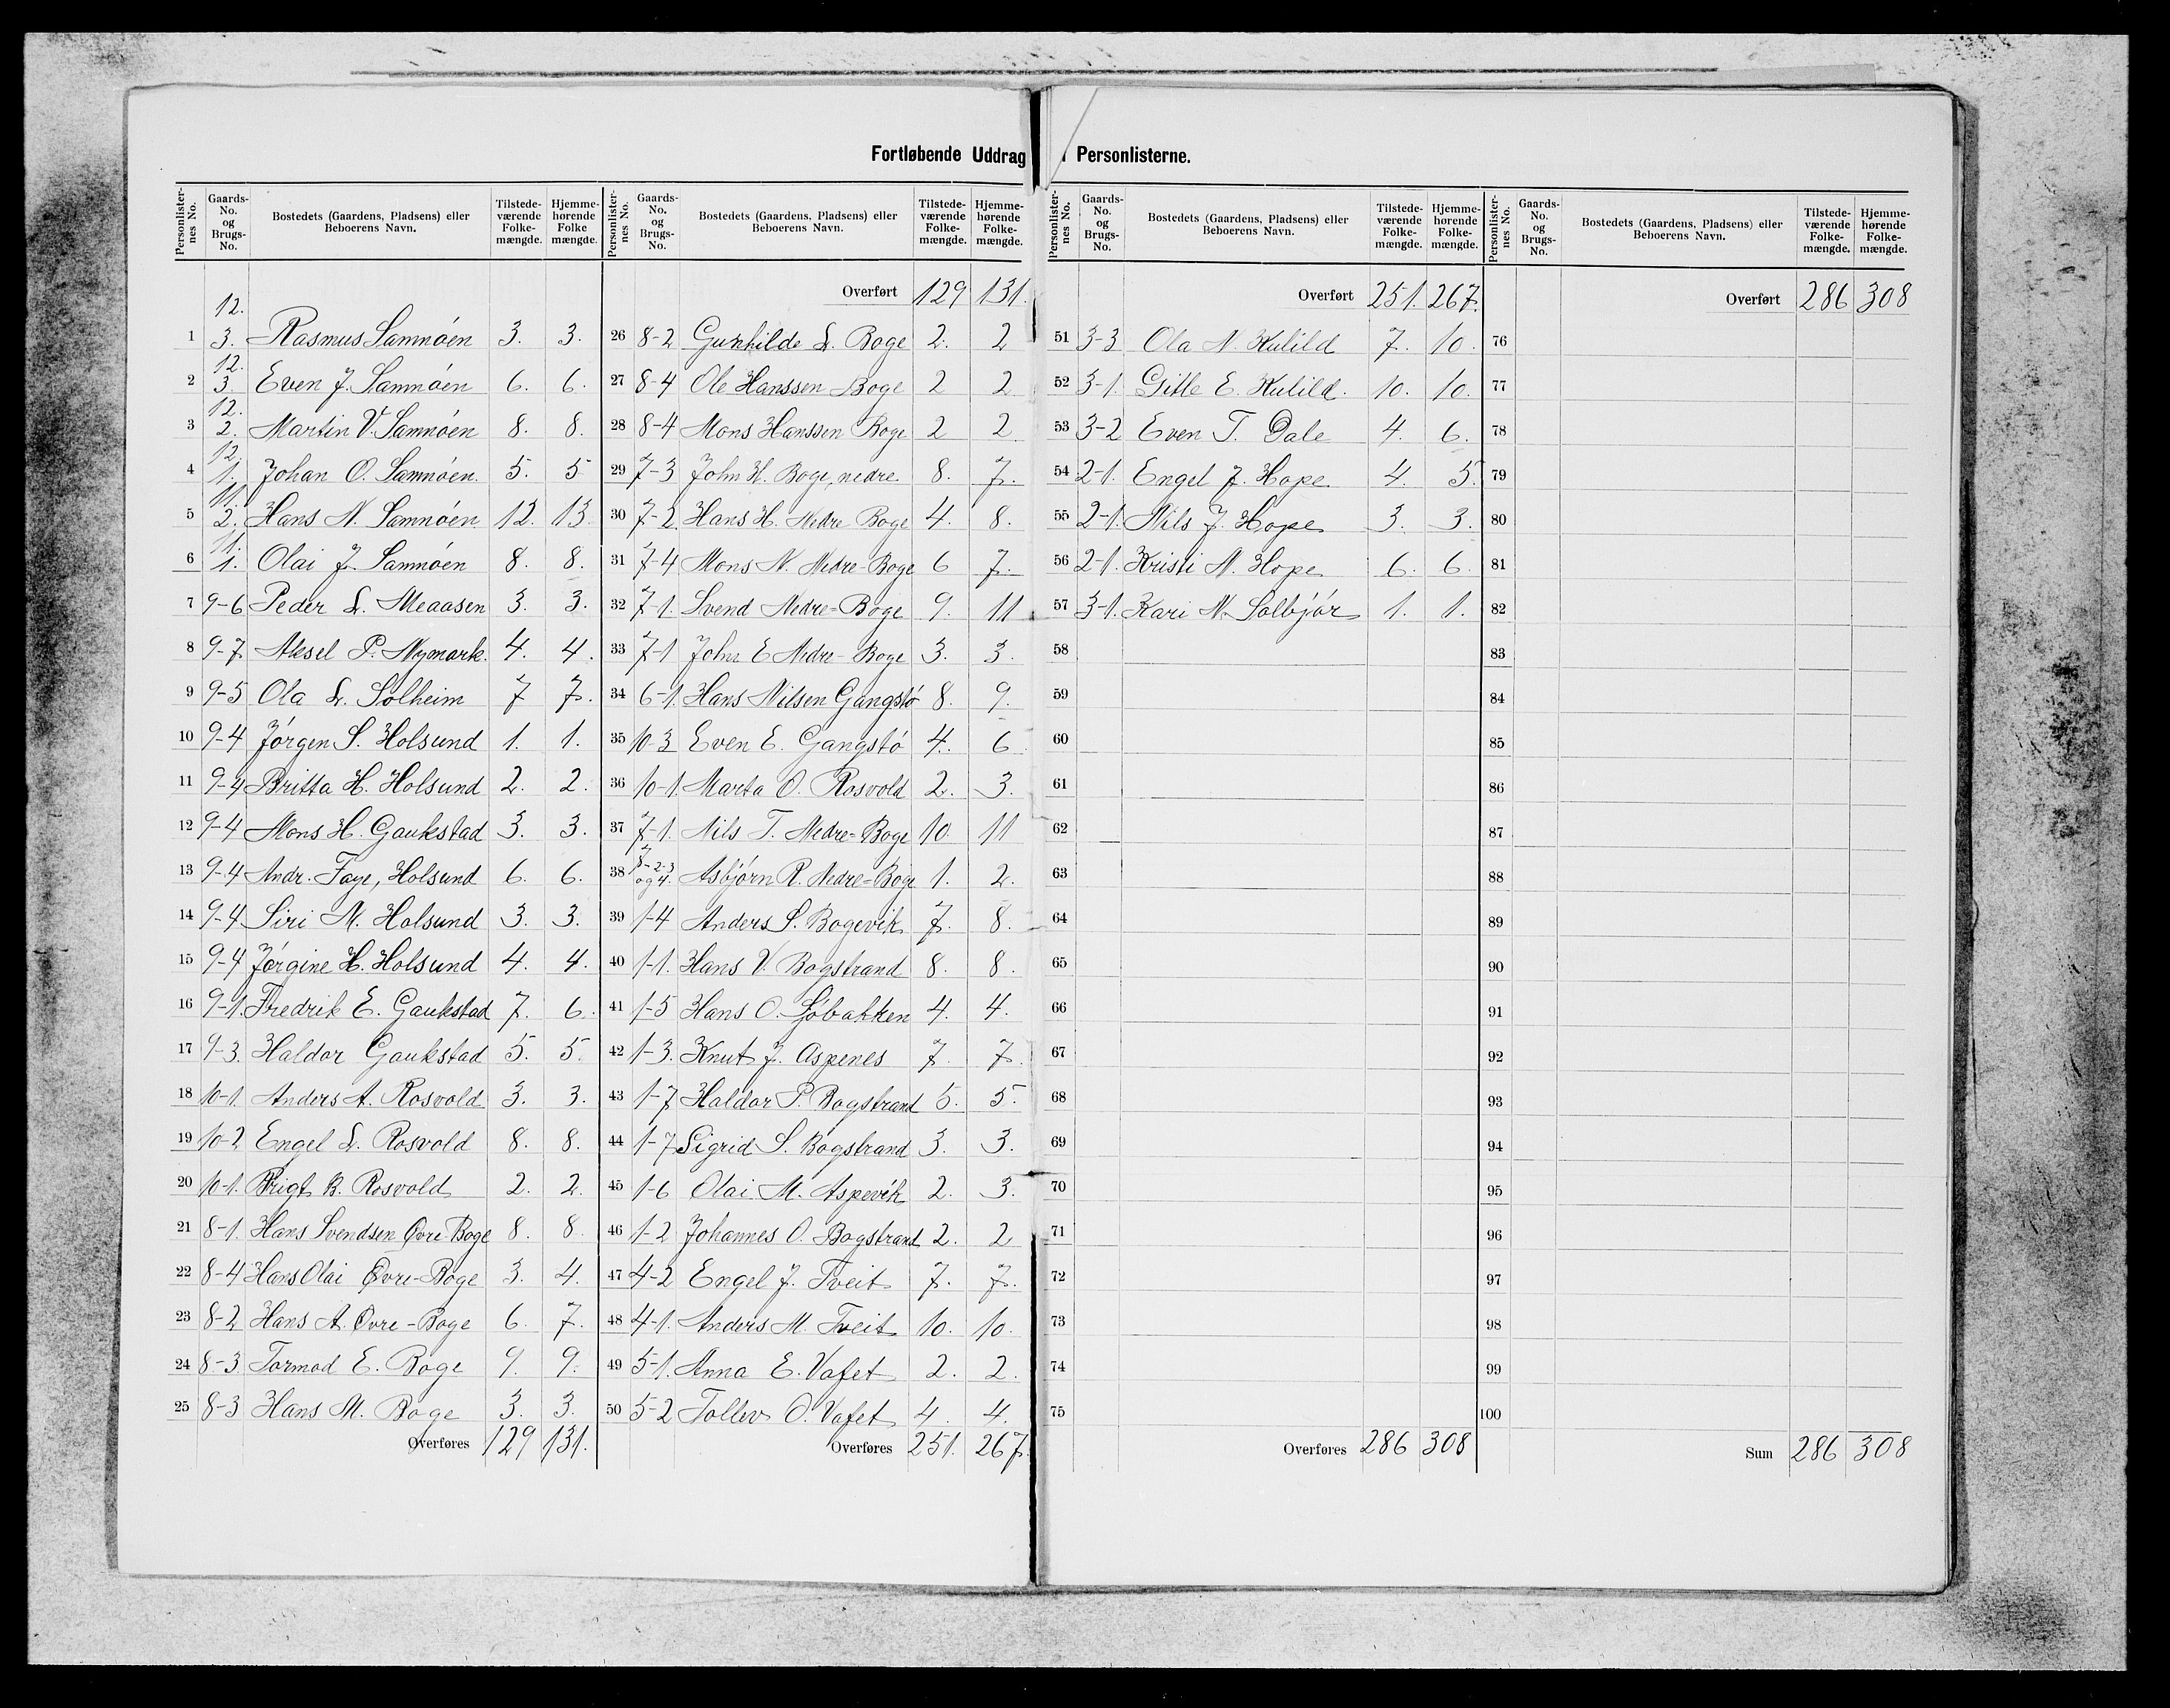 Fortløbende Uddrag Personlisterne.
Personlisternes No. Gaards-No. og Brugs-No. Bostedets (Gaardens, Pladsens) eller Beboerens Navn. Tilstedeværende Folkemængde. Hjemmehørende Folkemængde.
1 12. 3. Rasmus Samnöen 3. 3.
2 12. 3. Even J. Samnöen 6. 6.
3 12. 2. Martin V. Samnöen 8. 8.
4 12. 1. Johan O. Samnöen. 5. 5
5 11. 2. Hans N. Samnöen 12. 13.
6 11. 1. Olai J. Samnöen 8. 8.
7 9-6 Peder L. Meaasen 3. 3.
8 9-7 Aksel P. Nymark. 4. 4.
9 9-5 Ola L. Solheim 7 7.
10 9-4 Jörgen S. Holsund 1. 1.
11 9-4 Britta H. Holsund 2. 2.
12 9-4 Mons H. Gaukstad 3. 3.
13 9-4 Andr. Faye, Holsund 6. 6.
14 9-4 Siri M. Holsund 3. 3.
15 9-4 Jörgine H. Holsund 4. 4.
16 9-1. Fredrik E. Gaukstad 7. 6.
17 9-3. Haldor Gaukstad 5. 5.
18 10-1. Anders A. Rosvold 3. 3.
19 10-2 Engel L. Rosvold 8. 8.
20 10-1. Brigt B. Rosvold 2. 2.
21 8-1. Hans Svendsen Övre-Boge 8. 8.
22 8-4 Hans Olai Övre-Boge 3. 4.
23 8-2 Hans A. Övre-Boge 6. 7.
24 8-3 Tormod E. Boge 9. 9.
25 8-3 Hans M. Boge 3. 3.
Overføres 129 131.
Personlisternes No. Gaards-No. og Brugs-No. Bostedets (Gaardens, Pladsens) eller Beboerens Navn. Tilstedeværende Folkemængde. Hjemmehørende Folkemængde.
Overført 129 131.
26 8-2 Gunhilde L. Boge 2. 2
27 8-4 Ole Hanssen Boge 2 2
28 8-4 Mons Hanssen Boge 2 2
29 7-3 John H. Boge, nedre 8. 7.
30 7-2 Hans H. Nedre Boge 4. 8.
31 7-4 Mons N. Nedre-Boge 6 7.
32 7-1. Svend Nedre-Boge 9. 11
33 7-1 John E Nedre-Boge 3. 3.
34 6-1. Hans Nilsen Gangstö 8. 9.
35 10-3 Even E. Gangstö 4. 6
36 10-1. Marta O. Rosvold 2. 3.
37 7-1. Nils T. Nedre-Boge 10. 11
38 Asbjörn R. Nedre-Boge 1. 2.
39 1-4 Anders S. Bogevik 7. 8.
40 1-1. Hans V. Bogstrand 8. 8.
41 1-5 Hans O. Sjöbakken 4. 4.
42 1-3. Knut J. Aspenes 7. 7.
43 1-7 Haldor P. Bogstrand 5. 5.
44 1-7 Sigrid S. Bogstrand 3. 3.
45 1-6 Olai M. Aspevik 2. 3.
46 1-2 Johannes O. Bogstrand 2. 2
47 4-2 Engel J. Tveit 7. 7.
48 4-1. Anders M. Tveit 10. 10.
49 5-1. Anna E. Vafet 2. 2.
50 5-2 Tollev O. Vafet 4. 4.
Overføres 251. 267.
Personlisternes No. Gaards-No. og Brugs-No. Bostedets (Gaardens, Pladsens) eller Beboerens Navn. Tilstedeværende Folkemængde. Hjemmehørende Folkemængde.
Overført 251. 267.
51 3-3 Ola N. Kulild 7. 10.
52 3-1. Gitle E. Kulild. 10. 10.
53 3-2 Even T. Dale 4. 6.
54 2-1. Engel J. Hope 4. 5.
55 2-1. Nils J. Hope 3. 3.
56 2-1. Kristi N. Hope 6. 6.
57 3-1. Kari N. Solbjör 1. 1.
58
59
60
61
62
63
64
65
66
67
68
69
70
71
72
73
74
75
Overføres 286 308
Personlisternes No. Gaards-No. og Brugs-No. Bostedets (Gaardens, Pladsens) eller Beboerens Navn. Tilstedeværende Folkemængde. Hjemmehørende Folkemængde.
Overført 286 308
76
77
78
79
80
81
82
83
84
85
86
87
88
89
90
91
92
93
94
95
96
97
98
99
100
Sum 286 308